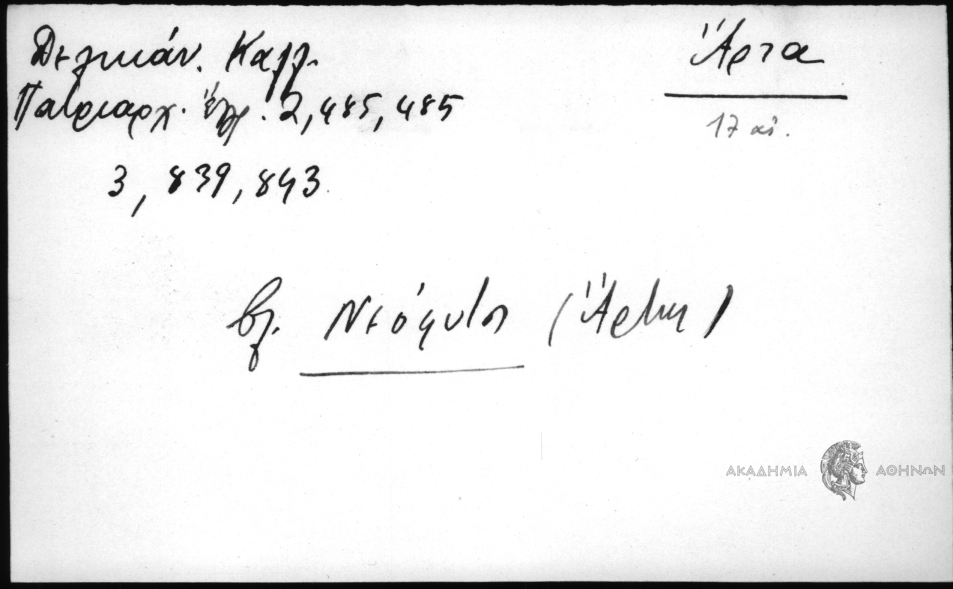 Δελικάν. Καλλ.
Πατριαρχ. ἔγγρ. 2,485,485
3, 839,843
Ἄρτα
17 αἰ.
βλ. Νεόφυτος (Ἄρτης)
ΑΚΑΔΗΜΙΑ ΑΘΗΝΩΝ